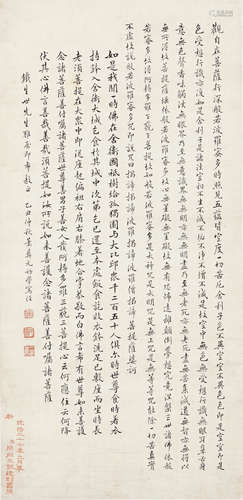 觀自在菩薩行深般若波羅蜜多時照見五蘊皆空度一切苦厄舍利子色不異空空不異色色即是空空即是
色受想行識亦復如是舍利子是諸法空相不生不滅不垢不淨不增不減是故空中無色無受想行識無眼耳鼻舌身
意無色聲香味觸法無眼界乃至無意識界無無明亦無無明盡乃至無老死亦無老死盡無苦集滅道無智亦無得以無所得
故菩提薩埵依般若波羅蜜多故心無罣礙無罣礙故無有恐怖遠離顛倒夢想究竟涅槃三世諸佛依般
若波羅蜜多故得阿耨多羅三藐三菩提故知般若波羅蜜多是大神咒是大明咒是無上咒是無等等咒能除一切苦真實
不虛故說般若波羅蜜多咒即說咒曰揭諦揭諦波羅揭諦波羅僧揭諦菩提薩婆訶
如是我聞一時佛在舍衛國祇樹給孤獨園與大比丘眾千二百五十人俱爾時世尊食時著衣
持鉢入舍衛大城乞食於其城中次第乞已還至本處飯食訖收衣鉢洗足已敷座而坐時長
老須菩提在大眾中即從座起偏袒右肩右膝著地合掌恭敬而白佛言希有世尊如來善護
念諸菩薩善付囑諸菩薩世尊善男子善女人發阿耨多羅三藐三菩提心云何應住云何降
伏其心佛言善哉善哉須菩提如汝所說如來善護念諸菩薩善付囑諸菩薩
先生雅屬即 乙丑